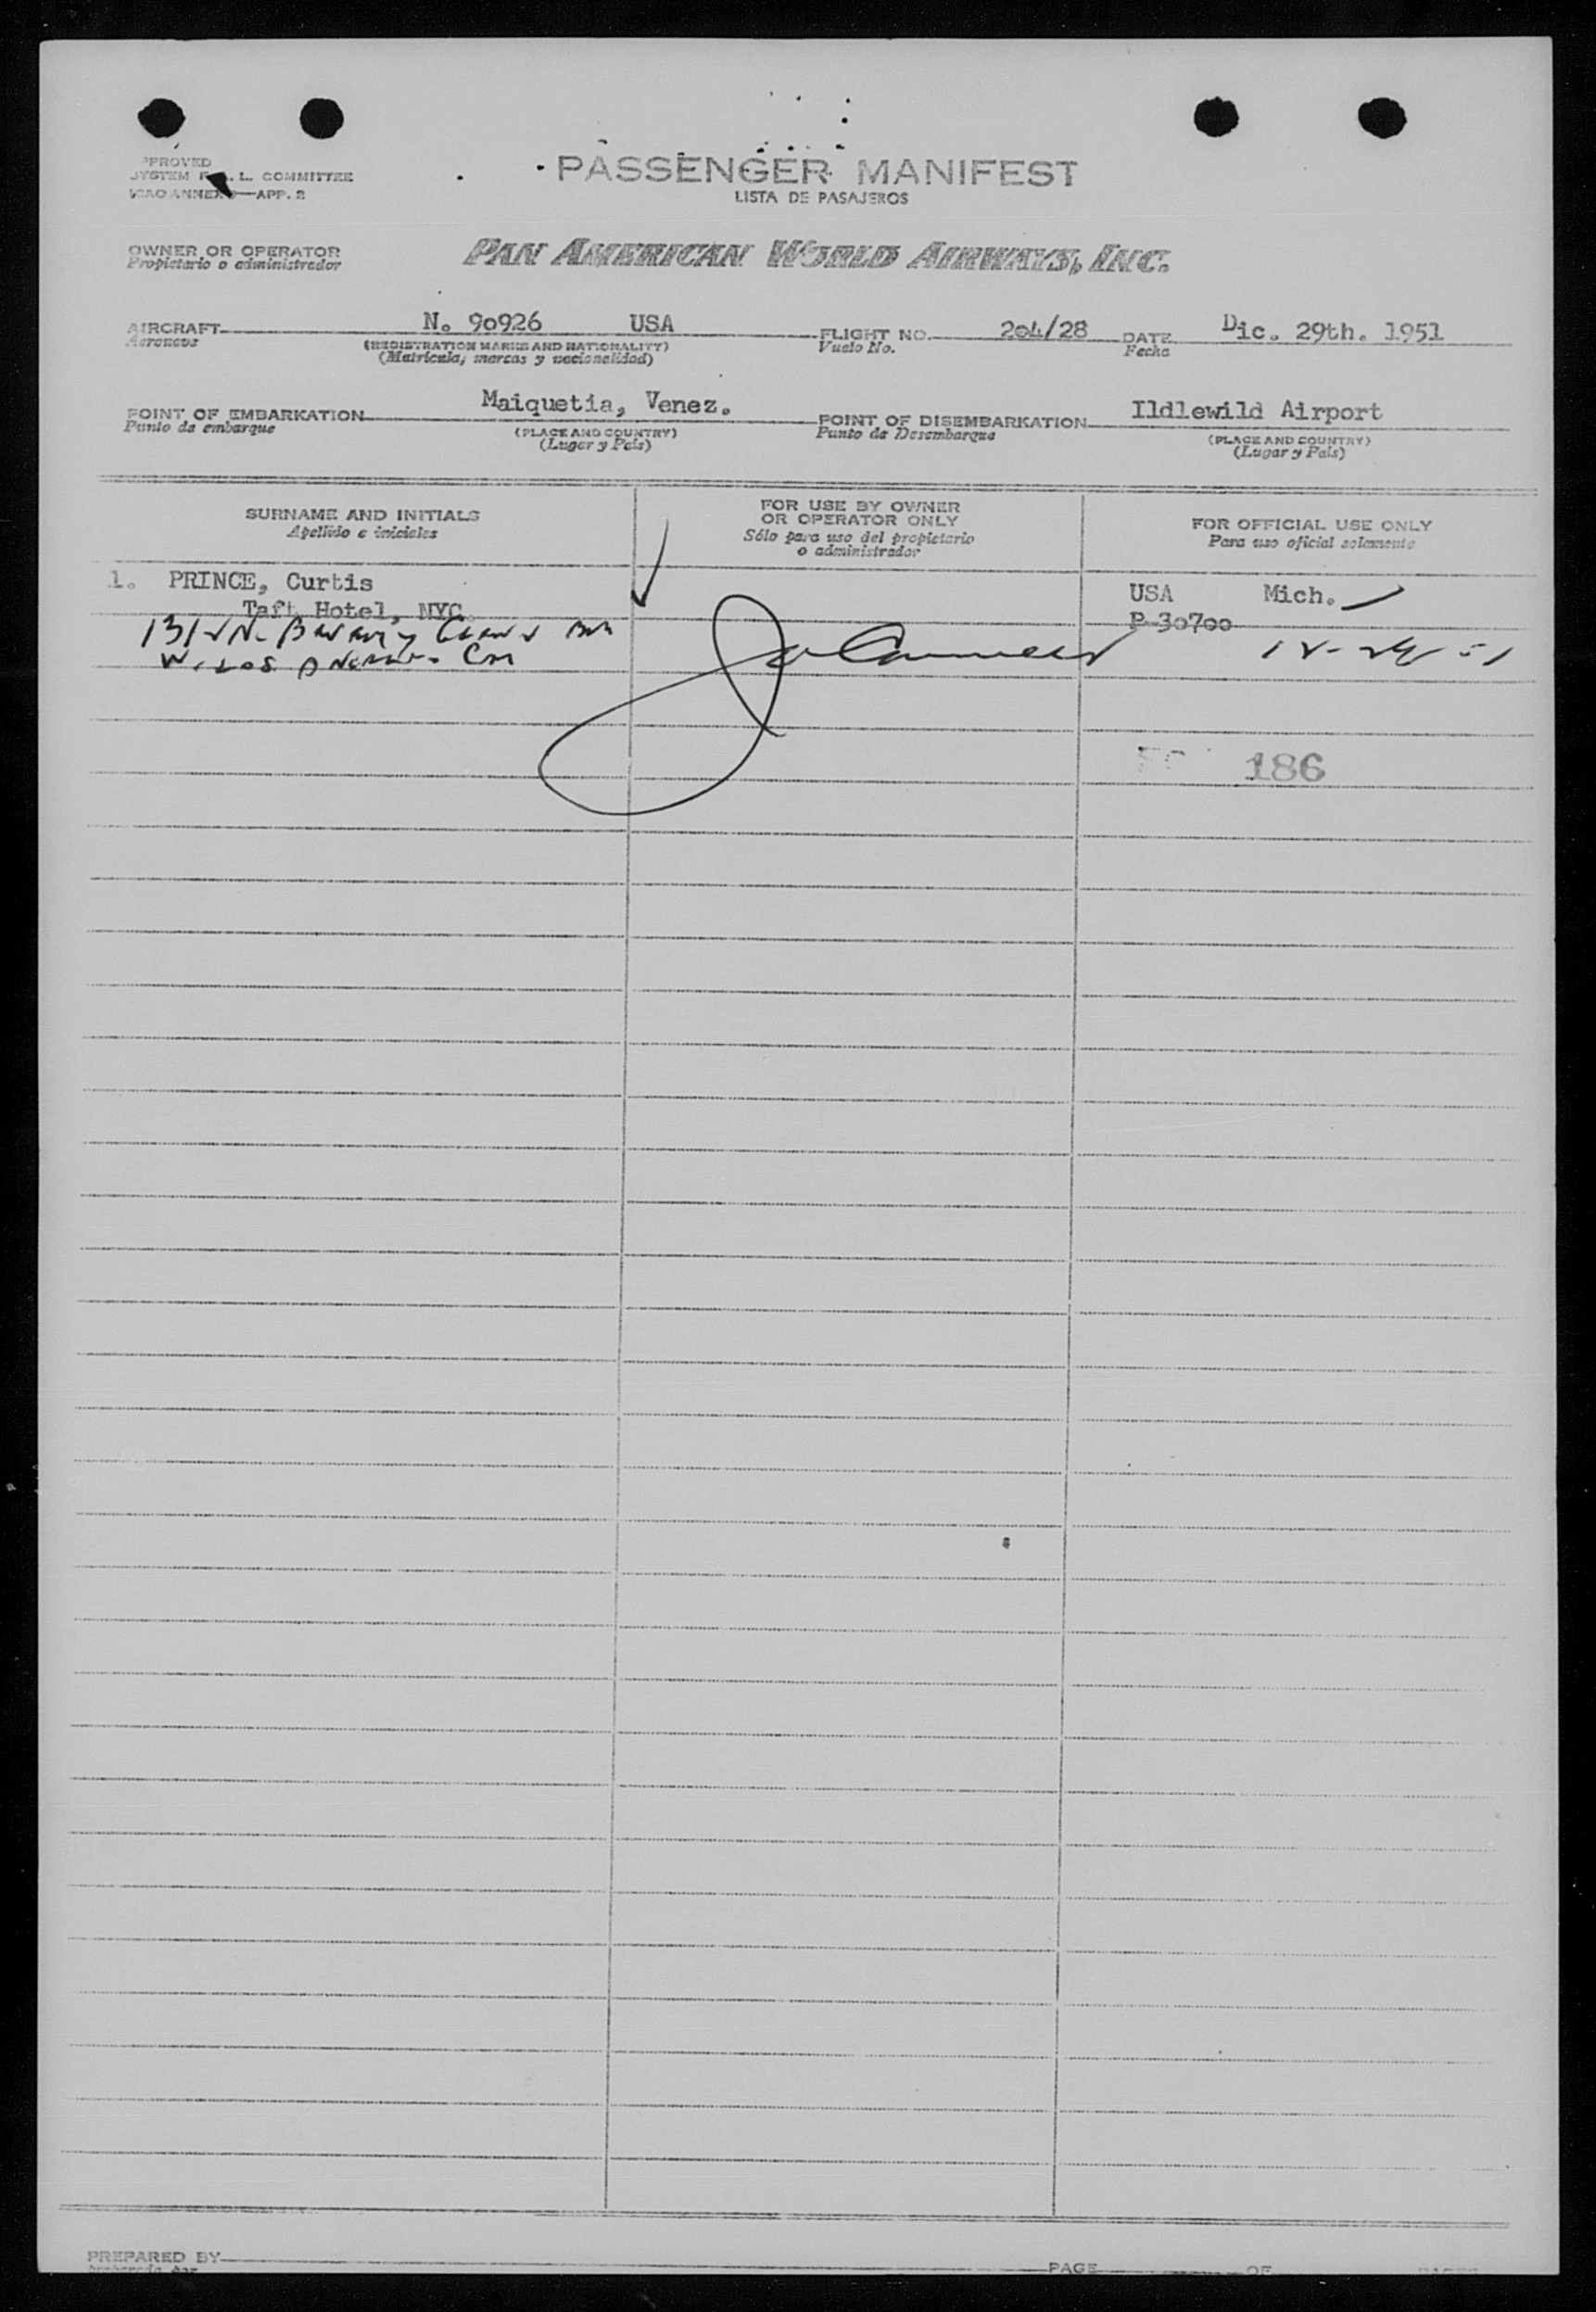 PASSENGER MANIFEST
LISTA DE PASAJEROS
PPROVED
SYSTEM F. L. COMMITTEE
ICAO ANNEX APP. 2
OWNER OR OPERATOR
Propietario o administrador
PAN AMERICAN WORLD AIRWAYS, INC.
AIRCRAFT N. 90926 USA FLIGHT NO. 204/28 DATE Dic. 29th. 1951
Aeronave (REGISTRATION MARKS AND NATIONALITY) Vuelo No. Fecha
(Matricula, marcas y nacionalidad)
POINT OF EMBARKATION Maiquetia, Venez. POINT OF DISEMBARKATION Ildlewild Airport
Punto de embarque (PLACE AND COUNTRY) Punto de Desembarque (PLACE AND COUNTRY)
(Lugar y País) (Lugar y País)
SURNAME AND INITIALS
Apellido e iniciales
FOR USE BY OWNER
OR OPERATOR ONLY
Sólo para uso del propietario
o administrador
FOR OFFICIAL USE ONLY
Para uso oficial solamente
1. PRINCE, Curtis USA Mich.
Taft Hotel, NYC. P-30700
N.
W. Los
186
PREPARED BY PAGE OF